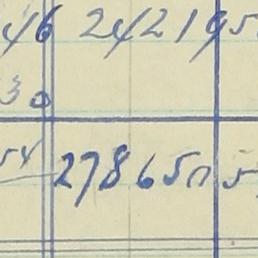 46 242195
30
54 2786505